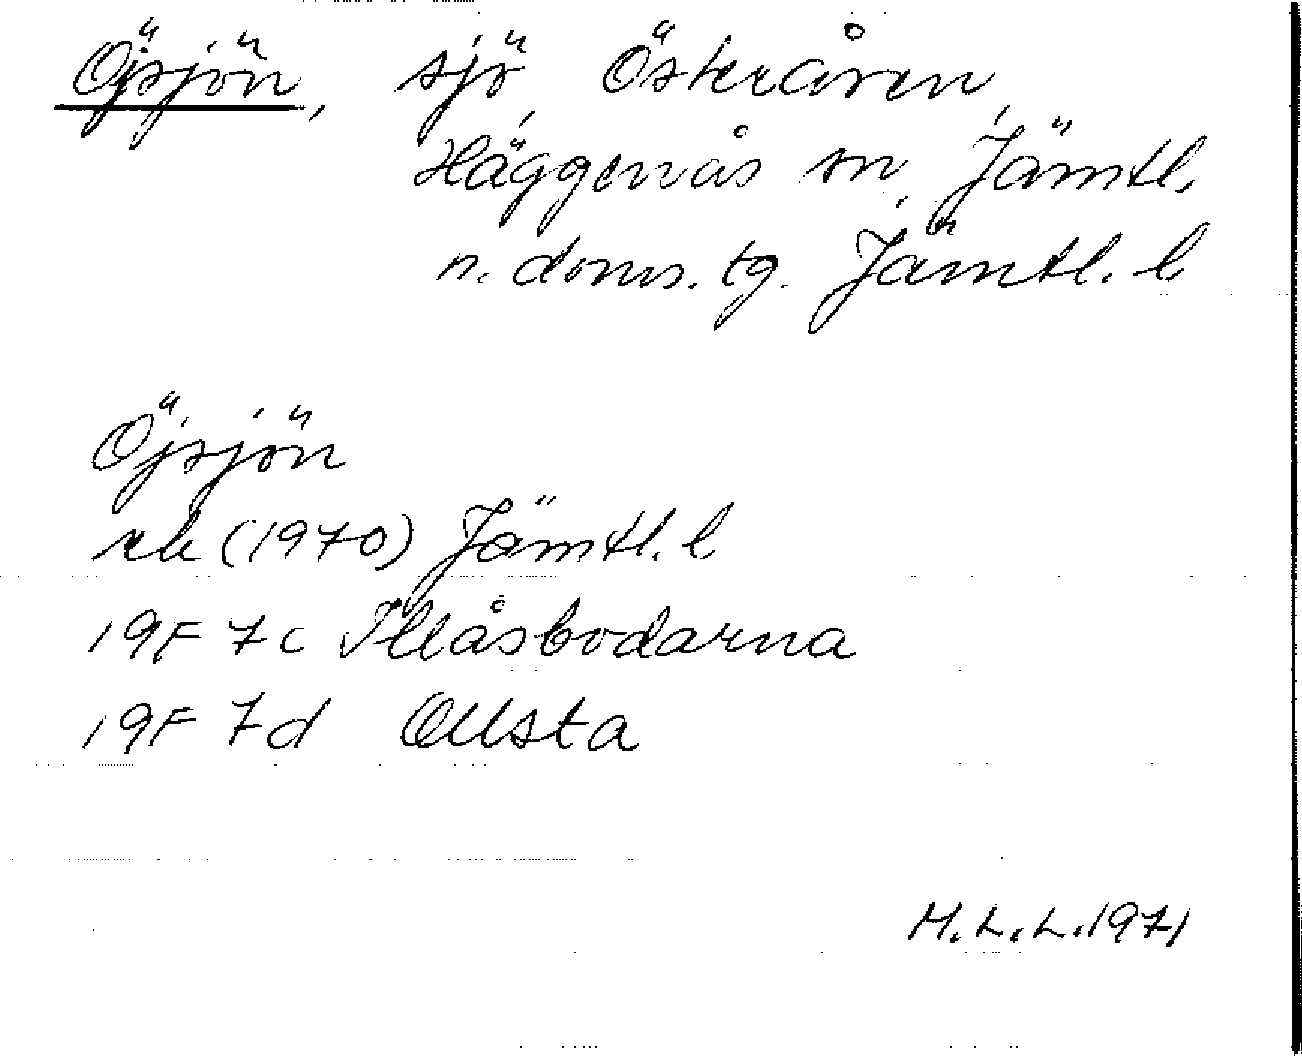 Öjsjön, sjö, Österåren,
Häggenås sn, Jämtl.
n. doms. tg. Jämtl. l
Öjsjön
rek (1970) Jämtl. l
19F 7c Illåsbodarna
19F 7d Ollsta
M.L.L. 1971